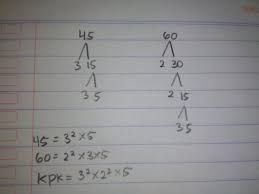 45 60
3 15 2 30
3 5 2 15
3 5
45 = 3² × 5
60 = 2² × 3 × 5
KPK = 3² × 2² × 5